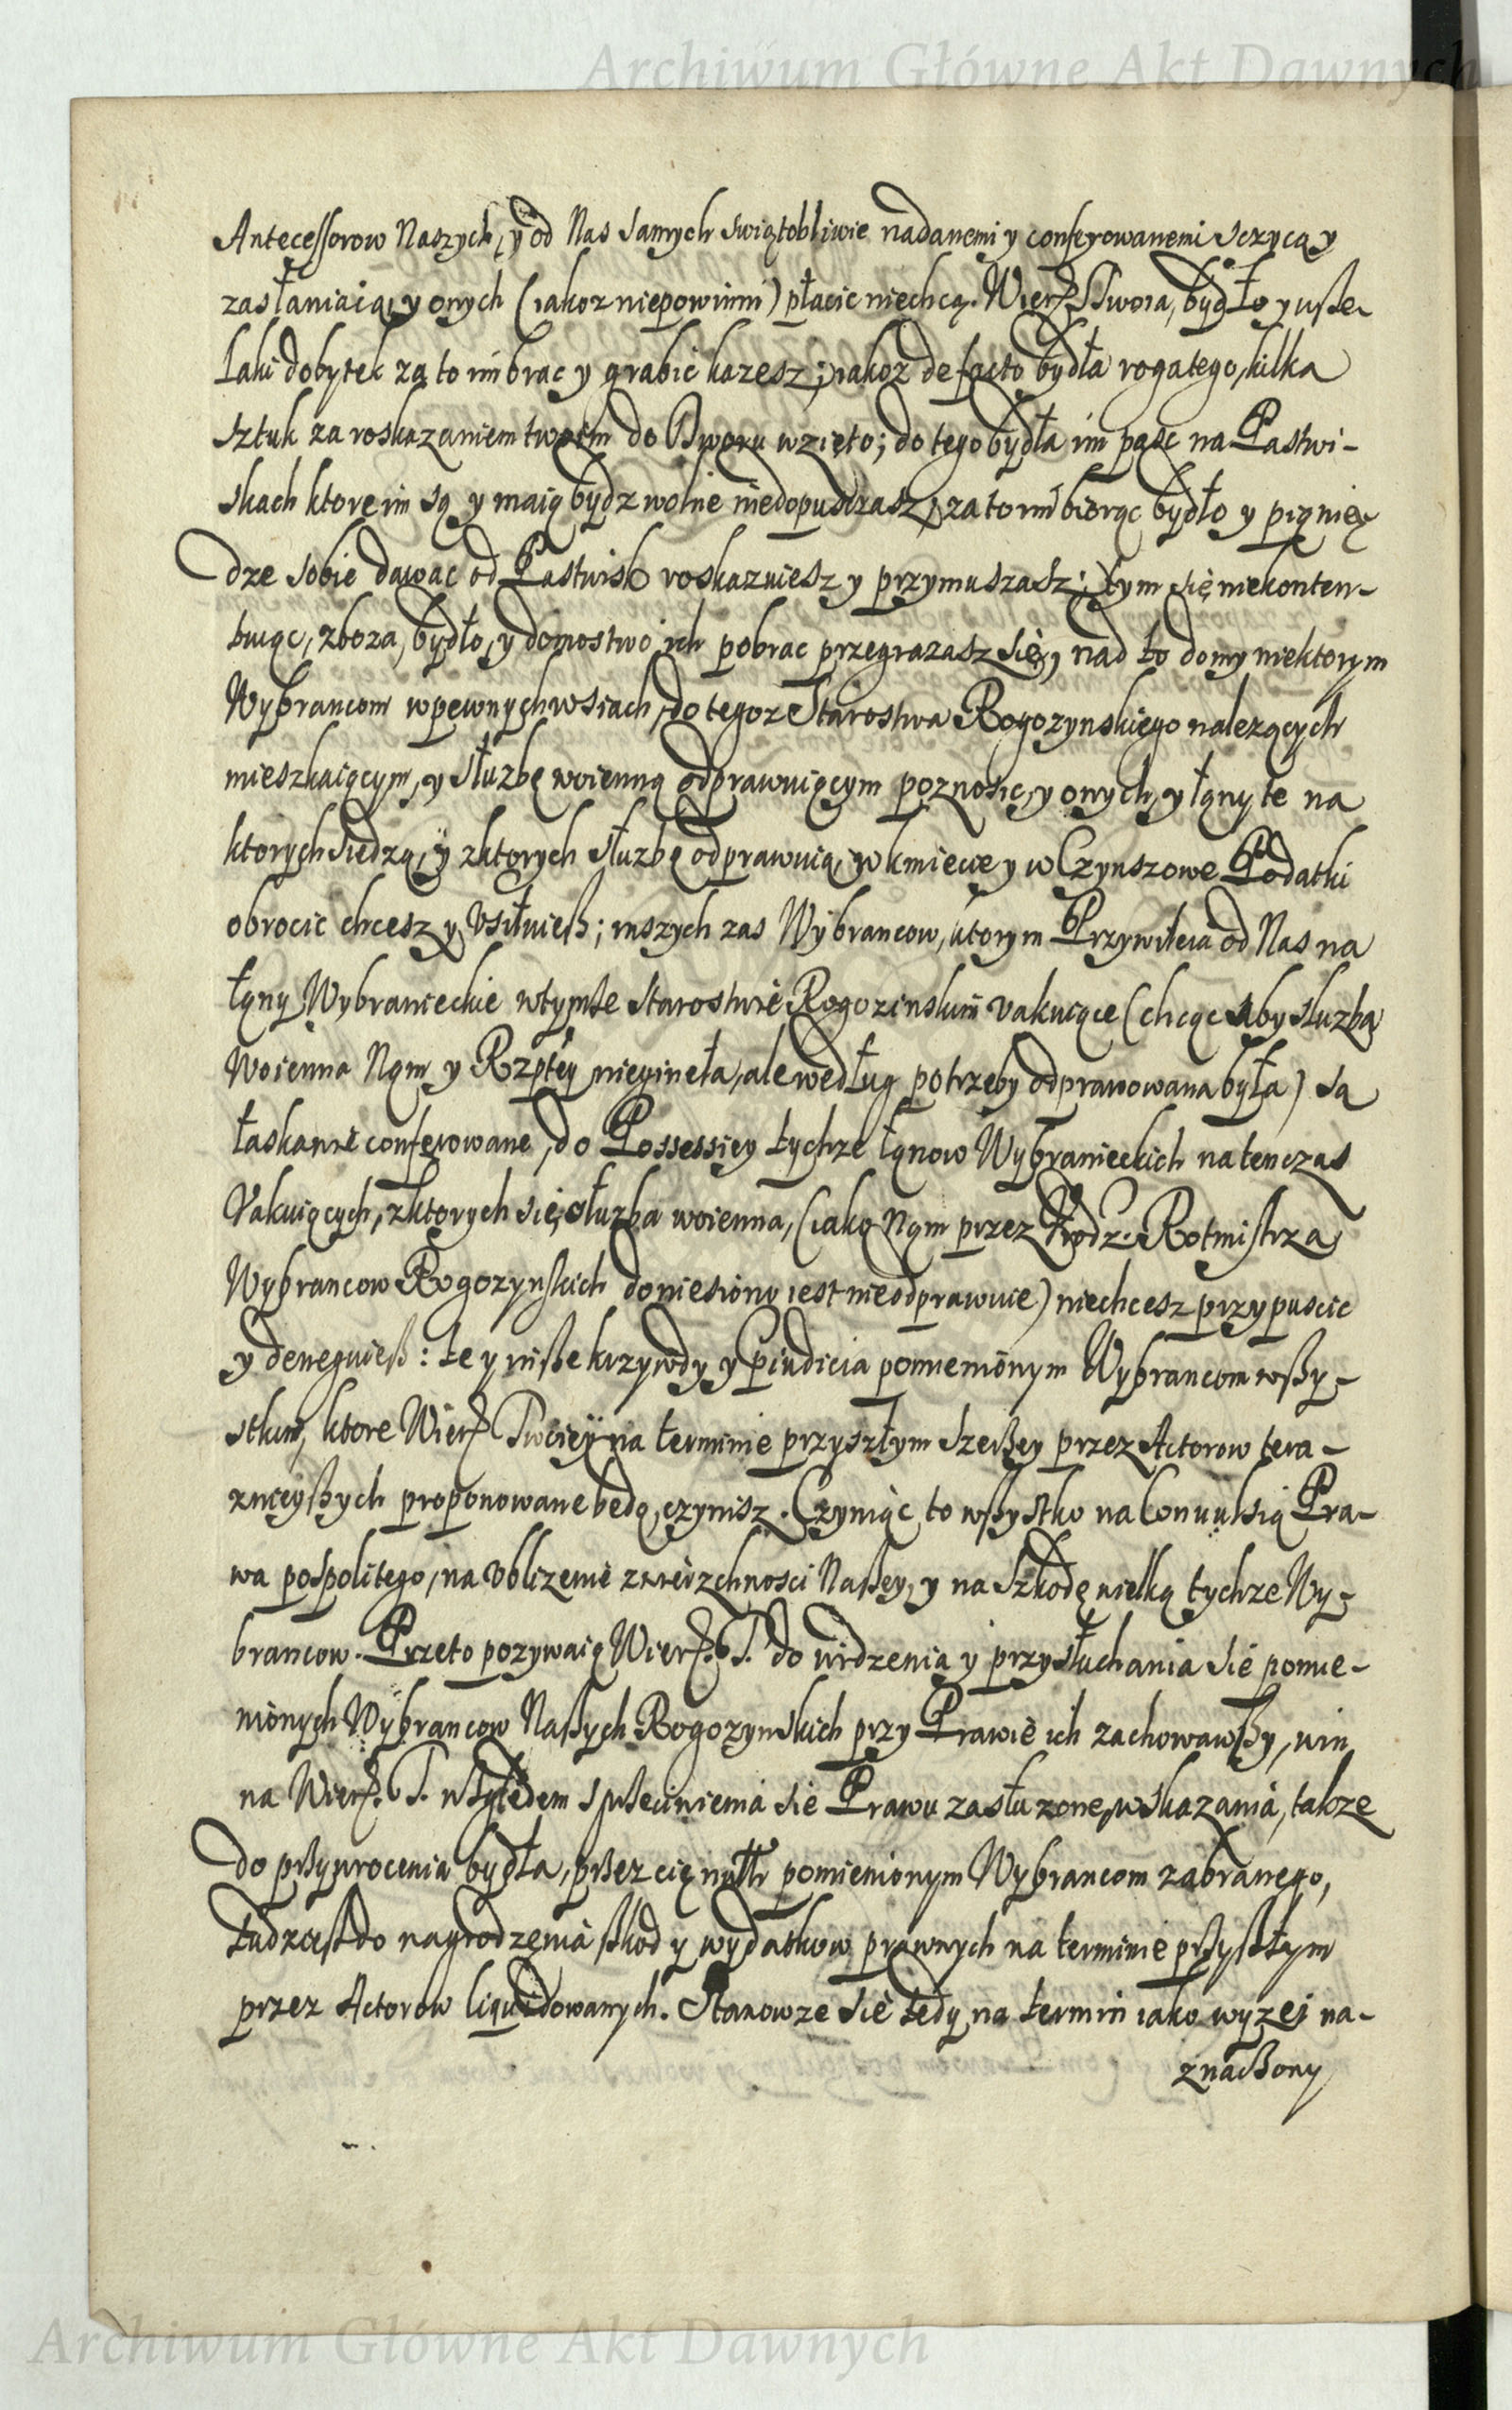 Archiwum Główne Akt Dawnych
Antecessorow Naszych, y od Nas samych swiątobliwie nadanemi y conferowanemi sczycą y
zasłaniaią, y onych (iakoz niepowinni) płacic niechcą. Wierz. Twoia, bydło y wsze-
laki dobytek za to im brac y grabic kazesz; iakoz de facto bydła rogatego, kilka
sztuk za roskazaniem twoim do Dworu wzięto; do tego bydła im paść na Pastwi-
skach ktore im są y maią bydz wolne niedopusczasz, za to im biorąc bydło y pienię-
dze sobie dawac od Pastwisk roskazuiesz y przymuszasz; tym się niekonten-
tuiąc, zboza, bydło, y domostwo ich pobrac przegrazasz się, nad to domy niektorym
Wybrancom w pewnych wsiach, do tegoz Starostwa Rogozynskiego nalezących
mieszkaiącym, y słuzbę woienną odprawuiącym poznosic, y onych, y łany te na
ktorych siedzą, y z ktorych słuzbę odprawuią, w kmiece y w Czynszowe Podatki
obrocic chcesz y Vsiłuiesz; inszych zas Wybrancow, ktorym Przywileia od Nas na
łany Wybranieckie w tymze Starostwie Rogozinskim vakuiące (chcąc aby sluzba
Woienna Nam y Rzptey niegineła, ale według potrzeby odprawowana była) są
łaskawie conferowane, do Possessiey tychze łanow Wybranieckich natenczas
Vakuiących, z ktorych się słuzba woienna, (iako Nam przez Vrodz. Rotmistrza
Wybrancow Rogozynskich doniesiono iest nieodprawuie) niechcesz przypuscic
y deneguiesz: te y insze krzywdy y Piudicia pomienionym Wybrancom wszy-
stkim, ktore Wierz. Twoiey na terminie przyszłym szerzey przez Actorow tera-
znieyszych proponowane będą, czynisz. Czyniąc to wszystko na Convulsią Pra-
wa pospolitego, na Vblizenie zwierzchnosci Naszey, y na szkodę wielką tychze Wy-
brancow. Przeto pozywaią Wierz. T. do widzenia y przysłuchania sie pomie-
nionych Wybrancow Naszych Rogozynskich przy Prawie ich zachowawszy, win
na Wierz. T. względem sprzeciwienia sie Prawu zasłuzone, wskazania, takze
do przywrocenia bydła, przez cię pomienionym Wybrancom zabranego,
tudziesz do nagrodzenia szkod y wydatkow prawnych na terminie przyszłym
przez Actorow liquidowanych. Stanowze sie tedy na termin iako wyzej na-
znaczony
Archiwum Główne Akt Dawnych